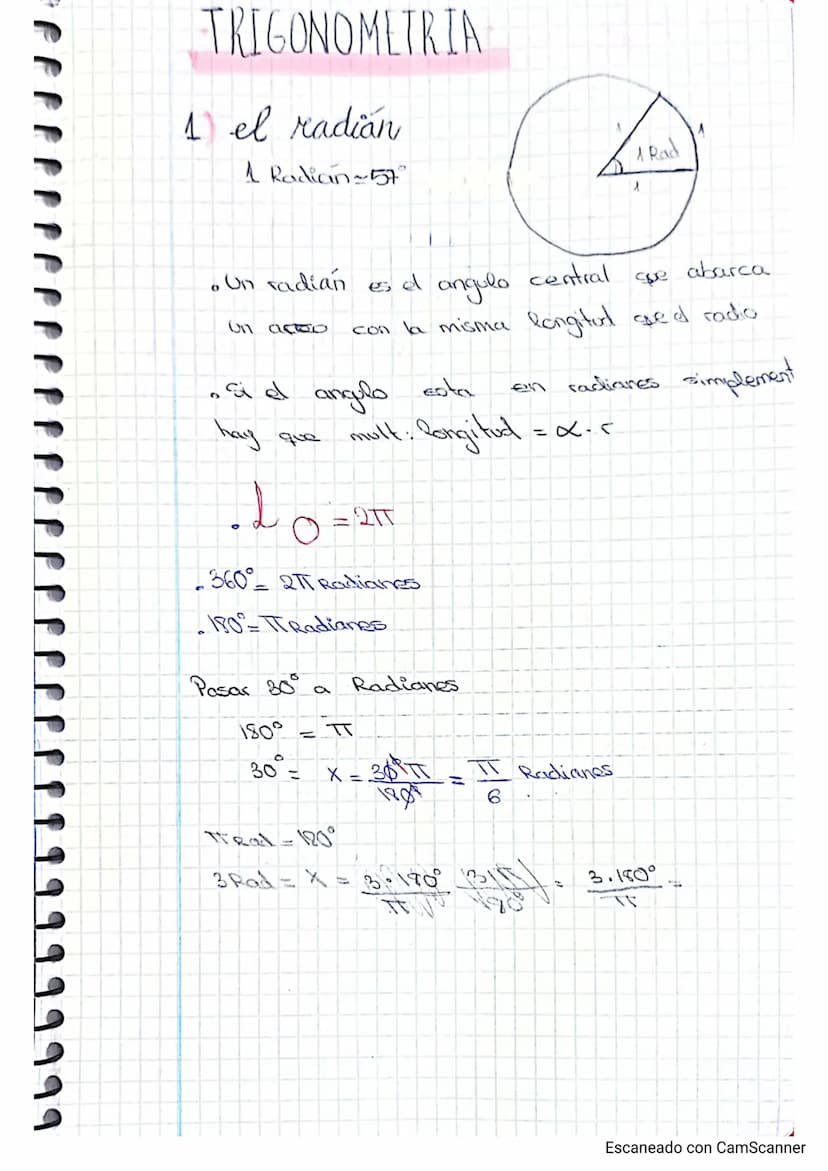 TRIGONOMETRIA
1) el radián
1 Radian≃57°
1
1
1 Rad
1
. Un radián es el angulo central que abarca
un arco con la misma longitud que el radio
. Si el angulo esta en radianes simplement
hay que mult: longitud = α · r
. L O = 2π
. 360° = 2π Radianes
. 180° = π Radianes
Pasar 30° a Radianes
180° = π
30° = x = 30°π / 180° = π / 6 Radianes
π Rad = 180°
3 Rad = x = 3 · 180° / π = 3 . 180° / π =
Escaneado con CamScanner